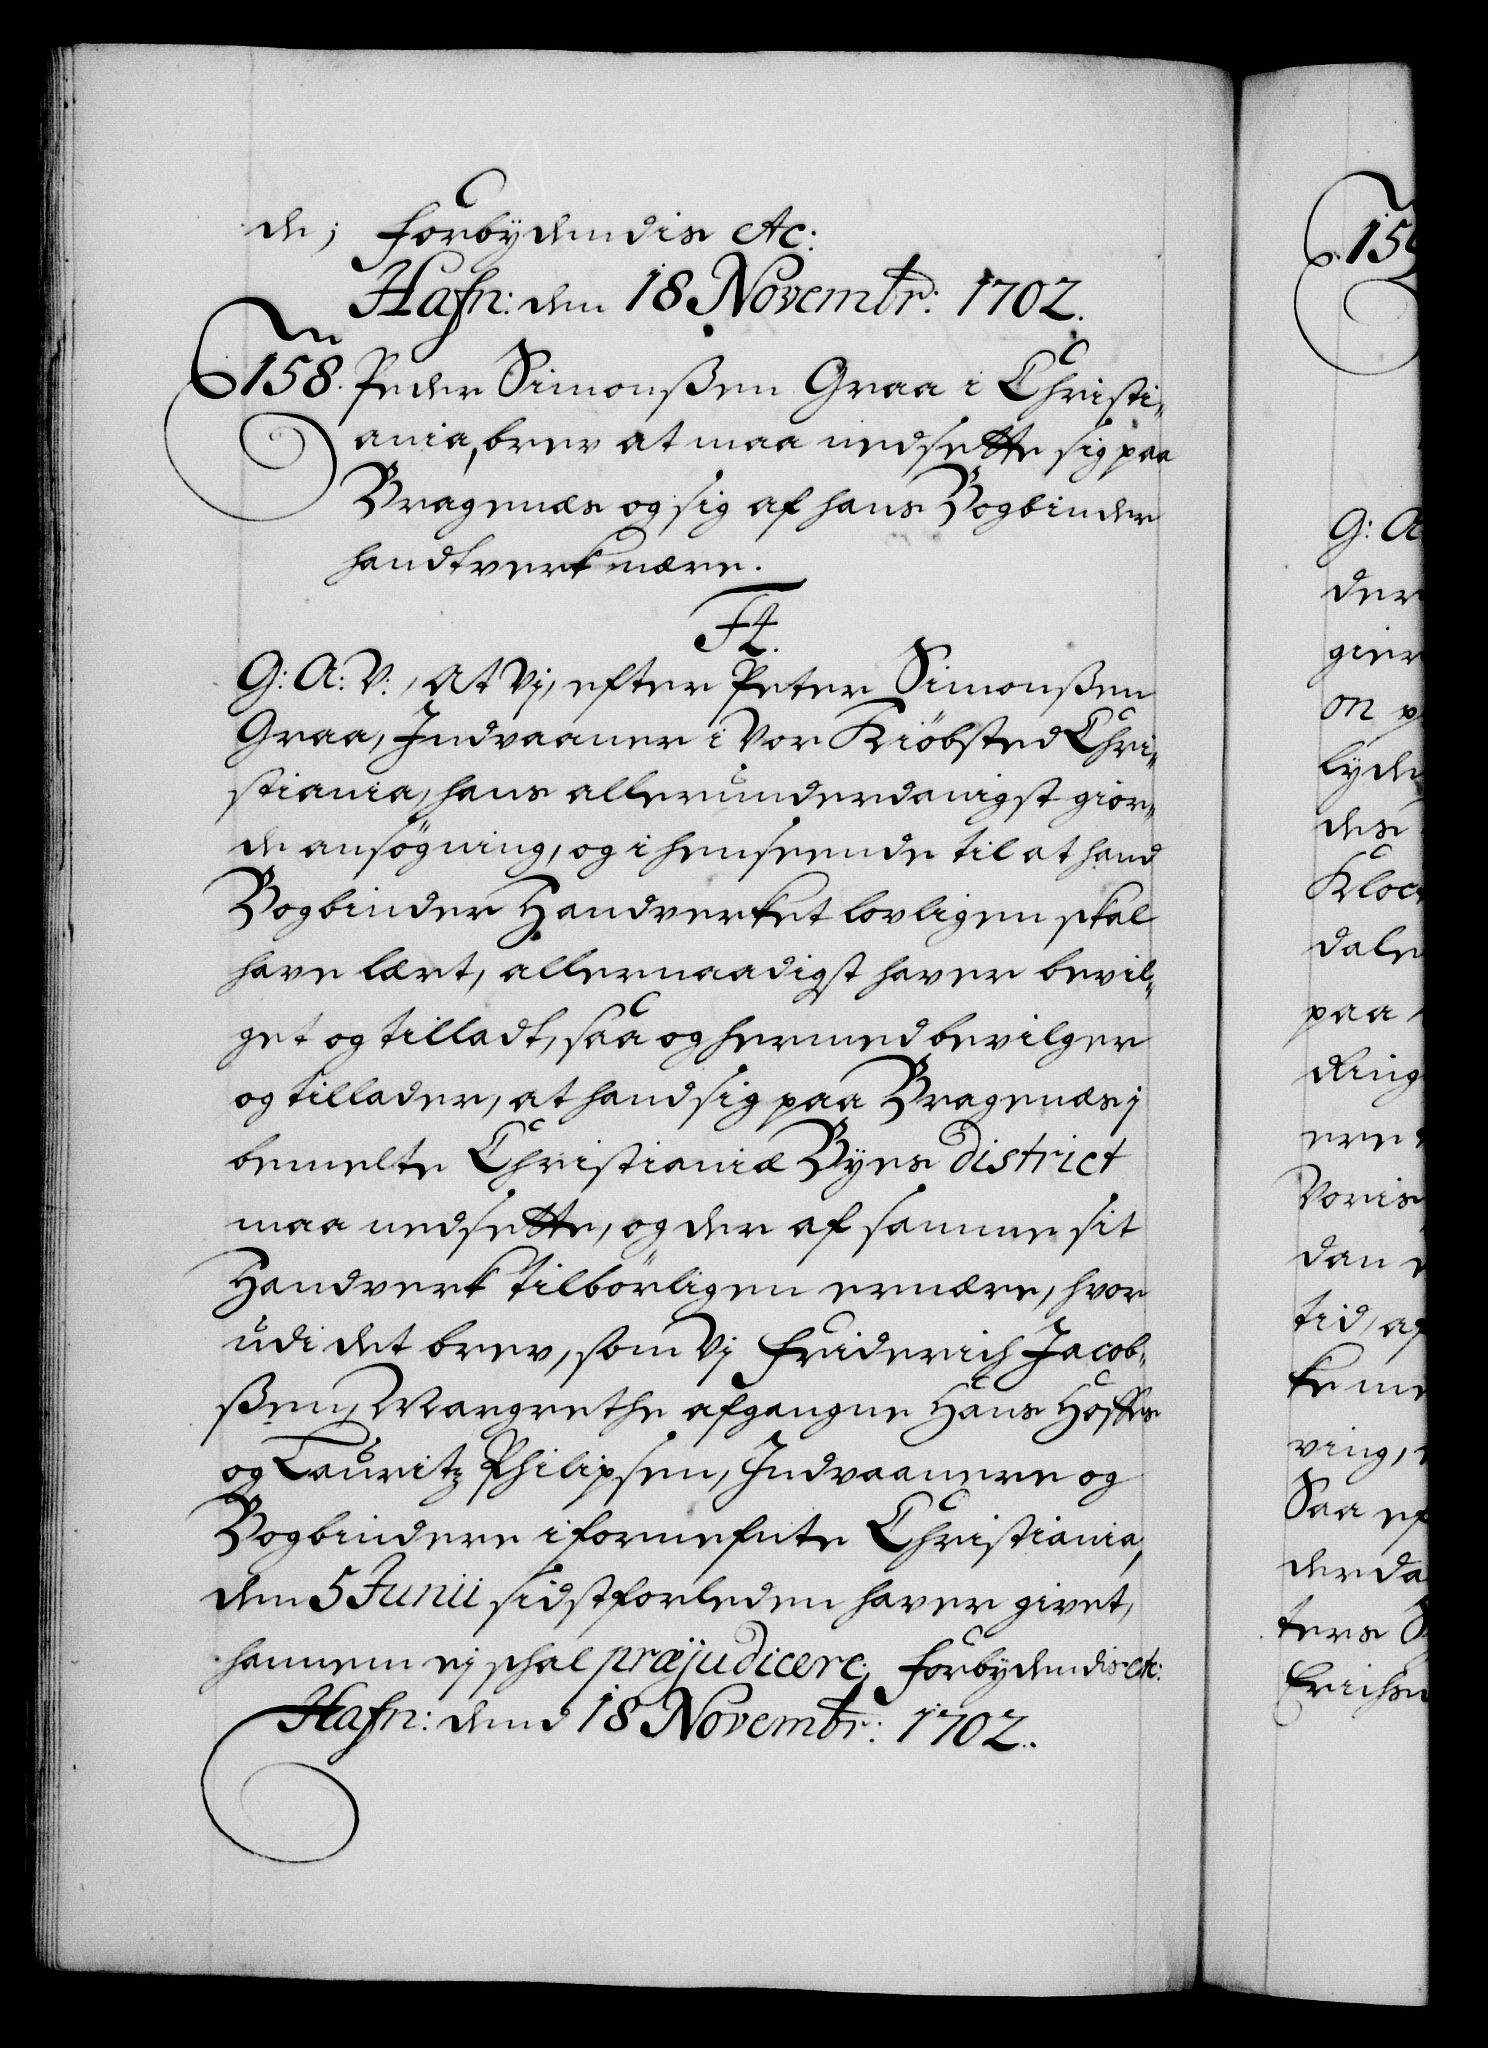 de; forbydendis etc:
Hafn: den 18 Novembr: 1702.
158. Peder Simonßen Graa i Christi„
ania, brev at maa nedsette sig paa
Bragenæs og sig af hans Bogbinder
handtverk nære.
F4.
G: A: V:, At Vj, efter Peter Simonßen
Graa, Indvaaner i Vor Kiöbsted Chri„
stiania, hans allerunderdanigst gior„
de ansögning, og i henseende til at hand
Bogbinder Handverket lovligen skal
have lært, allernaadigst haver bevil„
get og tilladt, saa og hermed bevilger
og tillader, at hand sig paa Bragenæs j
bemelte Christianiæ Byes district
maa nedsette, og der af samme sit
Handverk tilbörligen ernære, hvor
udi det brev, som Vj Friderich Jacob„
ßen, Margrethe afgangne Hans Hoffs
og Lauritz Philipsen, Indvaanere og
Bogbindere i fornefnte Christiania,
den 5 Junii sidstforleden haver givet,
hannem ej schal præjudicere; forbydendis etc:
Hafn: dend 18 Novembr: 1702.
159
G: A
der
gier
on p
lyde
des
Kloc
dale
paa
Ring
ere
Voris
dan
tid, af
ke me
ving,
Saa ef
derda
ters S
Erichs